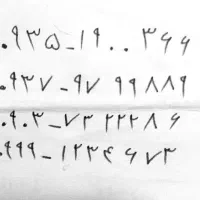 ۰۹۳۵_۱۹۰۰۳۶۶
۰۹۳۷_۹۷ ۹۹۸۸۹
۰۹۰۳_۷۳ ۲۲۲۸۶
۰۹۹۹_۱۲۳۴۶۷۳